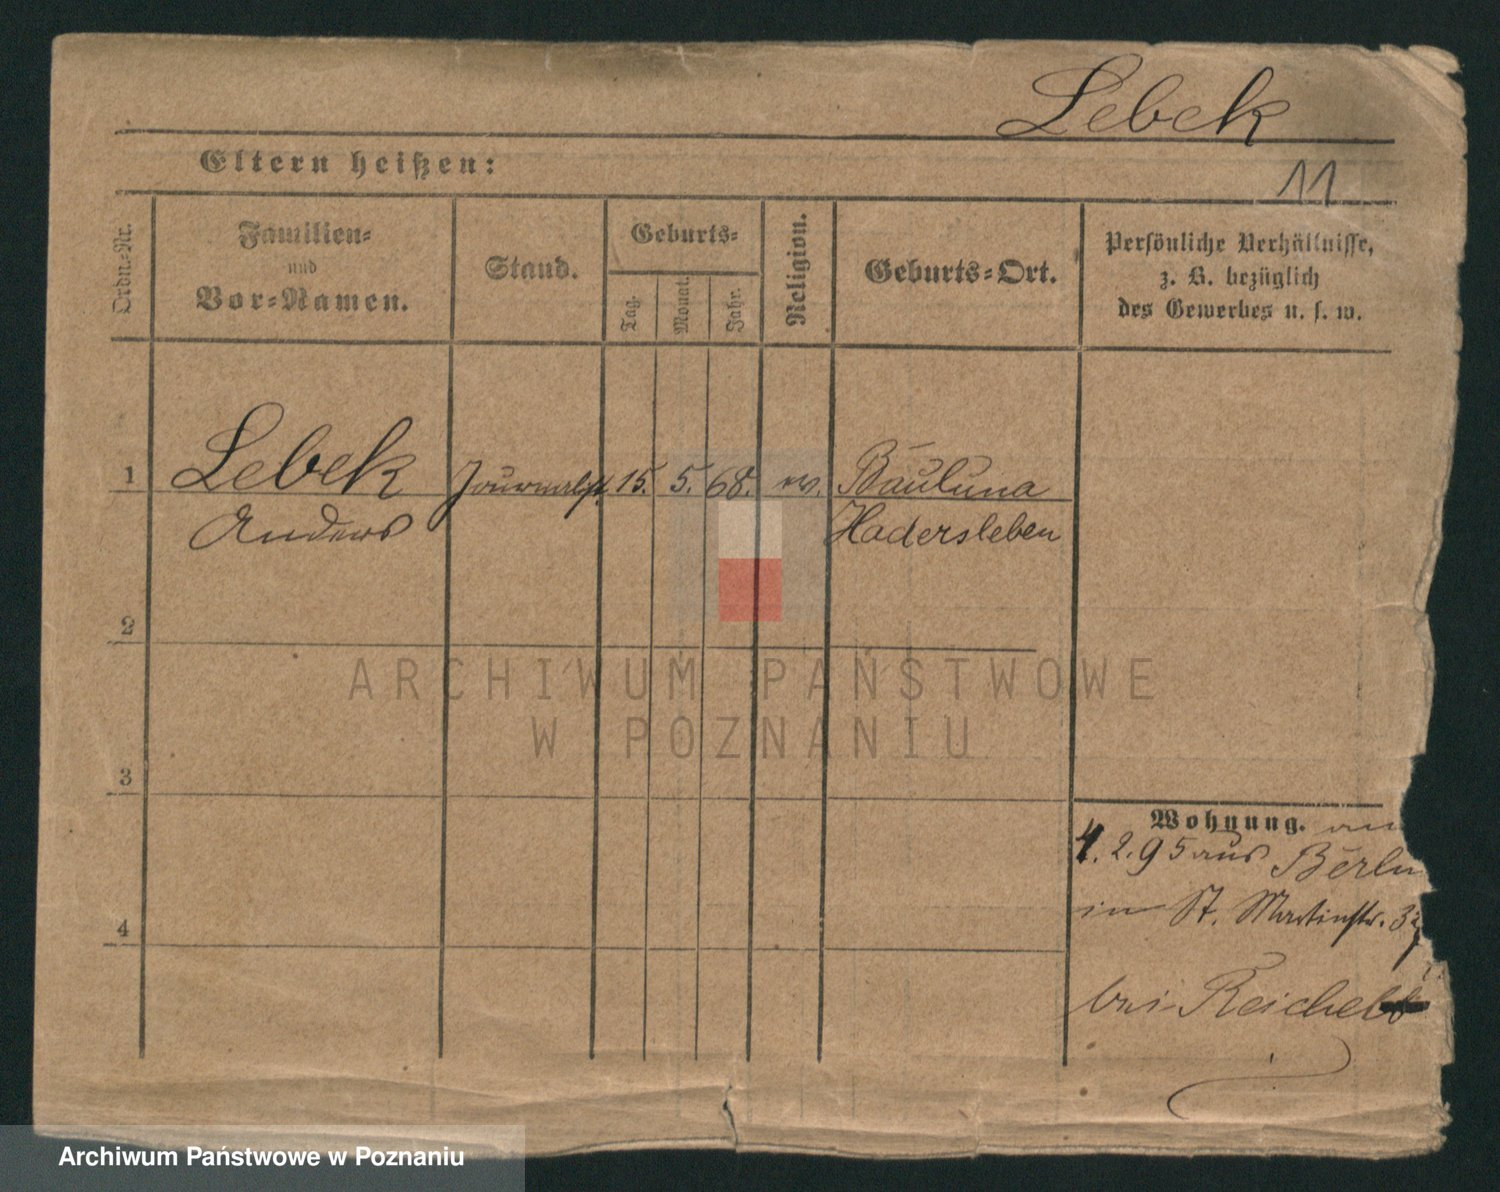 Lebek
Eltern heißen:
11
Ordn.-Nr.
Familien-
und
Vor-Namen.
Stand.
Geburts-
Tag.
Monat.
Jahr.
Religion.
Geburts-Ort.
Persönliche Verhältnisse,
z. B. bezüglich
des Gewerbes u. s. w.
1 Lebek Journalist. 15. 5. 68. ev.
Anders Hadersleben
2
3
Wohnung. an
4. 2. 95 aus Berlin
in St. Martinstr.
4
bei Reichelt
ARCHIWUM PAŃSTWOWE
W POZNANIU
Archiwum Państwowe w Poznaniu